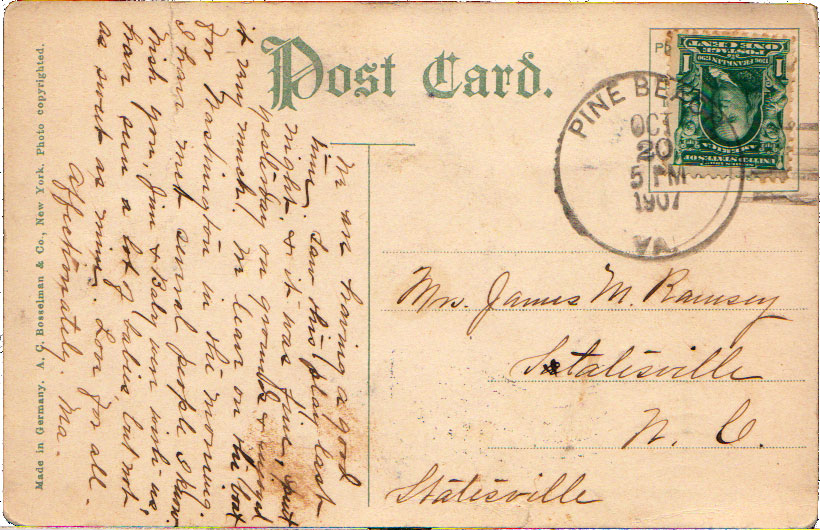 Post Card.
PINE BEACH
OCT
20
5 PM
1907
VA.
ONE CENT
POSTAGE
1 1
FRANKLIN
UNITED STATES OF
AMERICA
Made in Germany. A. C. Bosselman & Co., New York. Photo copyrighted.
Mrs. James M. Ramsey
Statesville
N. C.
Statesville
We are having a good
time. Saw this play last
night, & it was fine, spent
yesterday on grounds & enjoyed
it very much. We leave on the boat
for Washington in the morning.
I have met several people I know.
Wish you, Jim & Baby were with us,
have seen a lot of babies but not
as sweet as mine. Love for all -
Affectionately. Ma -